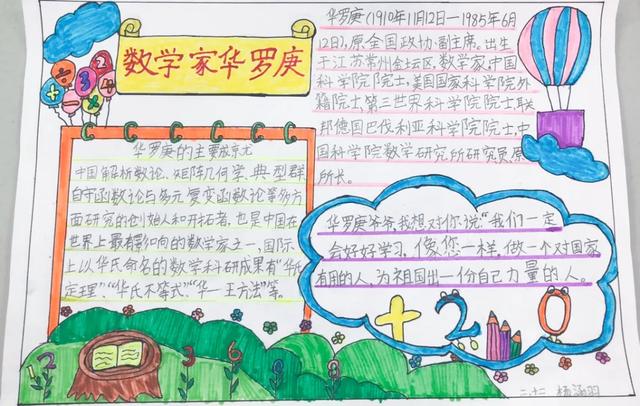 数学家华罗庚
华罗庚(1910年11月12日—1985年6月
12日),原全国政协副主席。出生
于江苏常州金坛区,数学家,中国
科学院院士,美国国家科学院外
籍院士,第三世界科学院院士,联
邦德国巴伐利亚科学院院士,中
国科学院数学研究所研究员,原
所长。
华罗庚的主要成就
中国解析数论、矩阵几何学、典型群、
自守函数论与多元复变函数论等多方
面研究的创始人和开拓者,也是中国在
世界上最有影响的数学家之一,国际
上以华氏命名的数学科研成果有“华氏
定理”、“华氏不等式”、“华—王方法”等。
华罗庚爷爷,我想对你说:“我们一定
会好好学习,像您一样,做一个对国家
有用的人,为祖国出一份自己力量的人。
÷ 3 2 × +
+ 2 0
1 2 3 6 0 8
二十二 杨涵羽